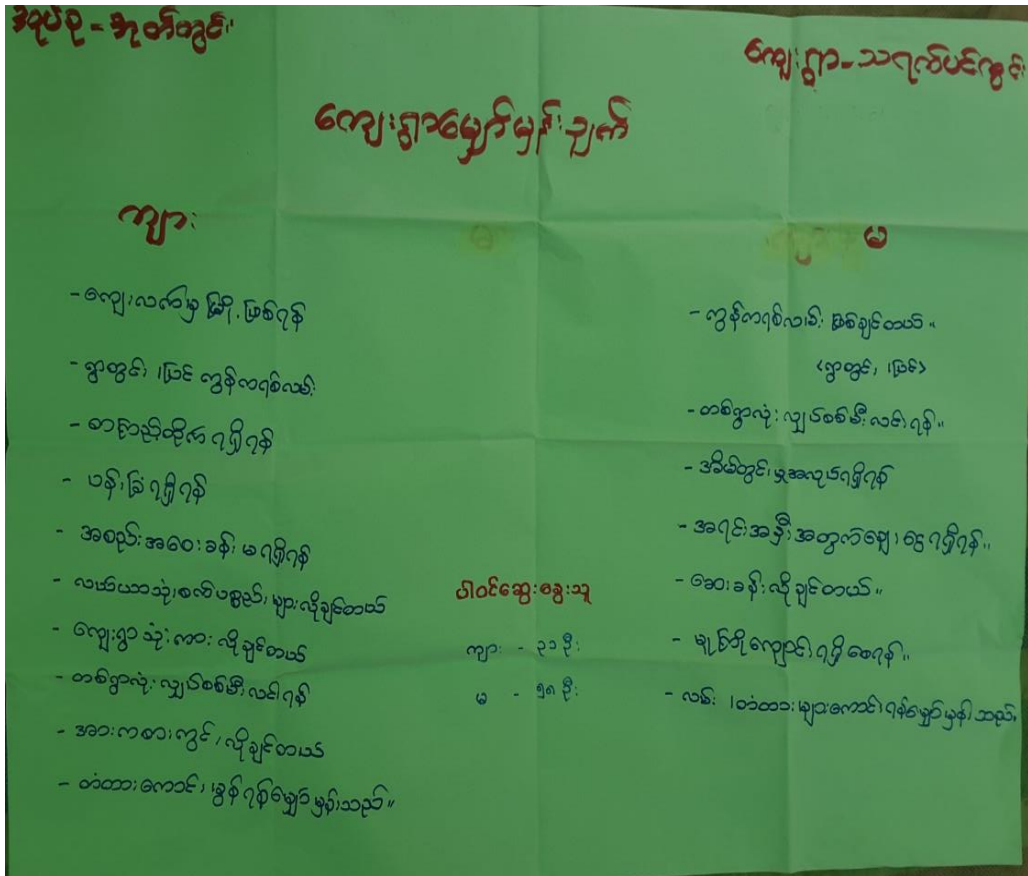 အုပ်စု - အုတ်တွင်း
ကျေးရွာ - သရက်ပင်ကွင်း
ကျေးရွာမျှော်မှန်းချက်
ကျား
- ကျေးလက်မှ မြို့ ဖြစ်ရန်
- ရွာတွင်း၊ ပြင် ကွန်ကရစ်လမ်း
- စာကြည့်တိုက် ရရှိရန်
- ပန်းခြံ ရရှိရန်
- အစည်းအဝေးခန်းမ ရရှိရန်
- လယ်ယာသုံးစက်ပစ္စည်းများ လိုချင်တယ်
- ကျေးရွာသုံးကား လိုချင်တယ်
- တစ်ရွာလုံး လျှပ်စစ်မီးလင်းရန်
- အားကစားကွင်း လိုချင်တယ်
- တံတားကောင်းမွန်ရန် မျှော်မှန်းသည်။
ပါဝင်ဆွေးနွေးသူ
ကျား - ၃၁ ဦး
မ - ၅၈ ဦး
မ
- ကွန်ကရစ်လမ်း ဖြစ်ချင်တယ်။
<ရွာတွင်း၊ ပြင်>
- တစ်ရွာလုံး လျှပ်စစ်မီးလင်းရန်။
- အိမ်တွင်းမှုအလုပ်ရရှိရန်
- အရင်းအနှီးအတွက်ချေးငွေရရှိရန်။
- ဆေးခန်းလိုချင်တယ်။
- မူကြိုကျောင်းရရှိစေရန်။
- လမ်း၊ တံတားများကောင်းရန်မျှော်မှန်းသည်။